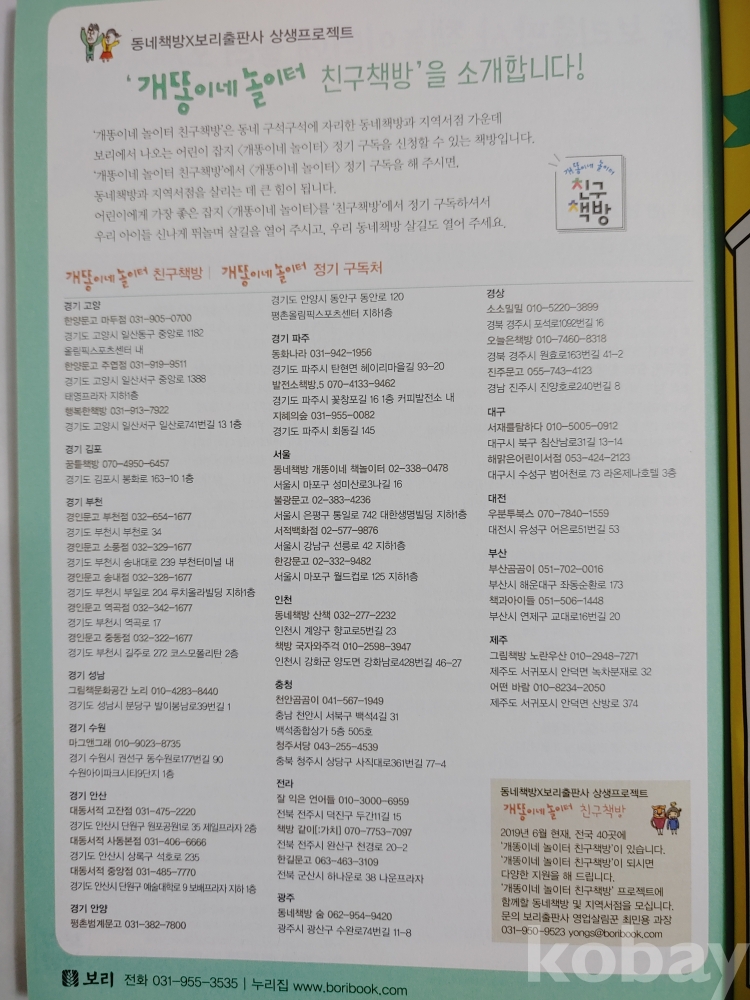 동네책방X보리출판사 상생프로젝트
‘개똥이네 놀이터 친구책방’을 소개합니다!
‘개똥이네 놀이터 친구책방’은 동네 구석구석에 자리한 동네책방과 지역서점 가운데
보리에서 나오는 어린이 잡지 〈개똥이네 놀이터〉 정기 구독을 신청할 수 있는 책방입니다.
‘개똥이네 놀이터 친구책방’에서 〈개똥이네 놀이터〉 정기 구독을 해 주시면,
동네책방과 지역서점을 살리는 데 큰 힘이 됩니다.
어린이에게 가장 좋은 잡지 〈개똥이네 놀이터〉를 ‘친구책방’에서 정기 구독하셔서
우리 아이들 신나게 뛰놀며 살길을 열어 주시고, 우리 동네책방 살길도 열어 주세요.
개똥이네 놀이터
친구
책방
개똥이네 놀이터 친구책방 | 개똥이네 놀이터 정기 구독처
경기 고양
한양문고 마두점 031-905-0700
경기도 고양시 일산동구 중앙로 1182
올림픽스포츠센터 내
한양문고 주엽점 031-919-9511
경기도 고양시 일산서구 중앙로 1388
태영프라자 지하1층
행복한책방 031-913-7922
경기도 고양시 일산서구 일산로741번길 13 1층
경기 김포
꿈틀책방 070-4950-6457
경기도 김포시 봉화로 163-10 1층
경기 부천
경인문고 부천점 032-654-1677
경기도 부천시 부천로 34
경인문고 소풍점 032-329-1677
경기도 부천시 송내대로 239 부천터미널 내
경인문고 송내점 032-328-1677
경기도 부천시 부일로 204 루치올라빌딩 지하1층
경인문고 역곡점 032-342-1677
경기도 부천시 역곡로 17
경인문고 중동점 032-322-1677
경기도 부천시 길주로 272 코스모폴리탄 2층
경기 성남
그림책문화공간 노리 010-4283-8440
경기도 성남시 분당구 발이봉남로39번길 1
경기 수원
마그앤그래 010-9023-8735
경기 수원시 권선구 동수원로177번길 90
수원아이파크시티9단지 1층
경기 안산
대동서적 고잔점 031-475-2220
경기도 안산시 단원구 원포공원1로 35 제일프라자 2층
대동서적 사동본점 031-406-6666
경기도 안산시 상록구 석호로 235
대동서적 중앙점 031-485-7770
경기도 안산시 단원구 예술대학로 9 보배프라자 지하 1층
경기 안양
평촌범계문고 031-382-7800
경기도 안양시 동안구 동안로 120
평촌올림픽스포츠센터 지하1층
경기 파주
동화나라 031-942-1956
경기도 파주시 탄현면 헤이리마을길 93-20
발전소책방,5 070-4133-9462
경기도 파주시 꽃창포길 16 1층 커피발전소 내
지혜의숲 031-955-0082
경기도 파주시 회동길 145
서울
동네책방 개똥이네 책놀이터 02-338-0478
서울시 마포구 성미산로3나길 16
불광문고 02-383-4236
서울시 은평구 통일로 742 대한생명빌딩 지하1층
서적백화점 02-577-9876
서울시 강남구 선릉로 42 지하1층
한강문고 02-332-9482
서울시 마포구 월드컵로 125 지하1층
인천
동네책방 산책 032-277-2232
인천시 계양구 향교로5번길 23
책방 국자와주걱 010-2598-3947
인천시 강화군 양도면 강화남로428번길 46-27
충청
천안곰곰이 041-567-1949
충남 천안시 서북구 백석4길 31
백석종합상가 5층 505호
청주서당 043-255-4539
충북 청주시 상당구 사직대로361번길 77-4
전라
잘 익은 언어들 010-3000-6959
전북 전주시 덕진구 두간11길 15
책방 같이[:가치] 070-7753-7097
전북 전주시 완산구 천경로 20-2
한길문고 063-463-3109
전북 군산시 하나운로 38 나운프라자
광주
동네책방 숨 062-954-9420
광주시 광산구 수완로74번길 11-8
경상
소소밀밀 010-5220-3899
경북 경주시 포석로1092번길 16
오늘은책방 010-7460-8318
경북 경주시 원효로163번길 41-2
진주문고 055-743-4123
경남 진주시 진양호로240번길 8
대구
서재를탐하다 010-5005-0912
대구시 북구 침산남로31길 13-14
해맑은어린이서점 053-424-2123
대구시 수성구 범어천로 73 라온제나호텔 3층
대전
우분투북스 070-7840-1559
대전시 유성구 어은로51번길 53
부산
부산곰곰이 051-702-0016
부산시 해운대구 좌동순환로 173
책과아이들 051-506-1448
부산시 연제구 교대로16번길 20
제주
그림책방 노란우산 010-2948-7271
제주도 서귀포시 안덕면 녹차분재로 32
어떤 바람 010-8234-2050
제주도 서귀포시 안덕면 산방로 374
동네책방X보리출판사 상생프로젝트
개똥이네 놀이터 친구책방
2019년 6월 현재, 전국 40곳에
‘개똥이네 놀이터 친구책방’이 있습니다.
‘개똥이네 놀이터 친구책방’이 되시면
다양한 지원을 해 드립니다.
‘개똥이네 놀이터 친구책방’ 프로젝트에
함께할 동네책방 및 지역서점을 모십니다.
문의 보리출판사 영업살림꾼 최민용 과장
031-950-9523 yongs@boribook.com
보리 전화 031-955-3535 | 누리집 www.boribook.com
kobay